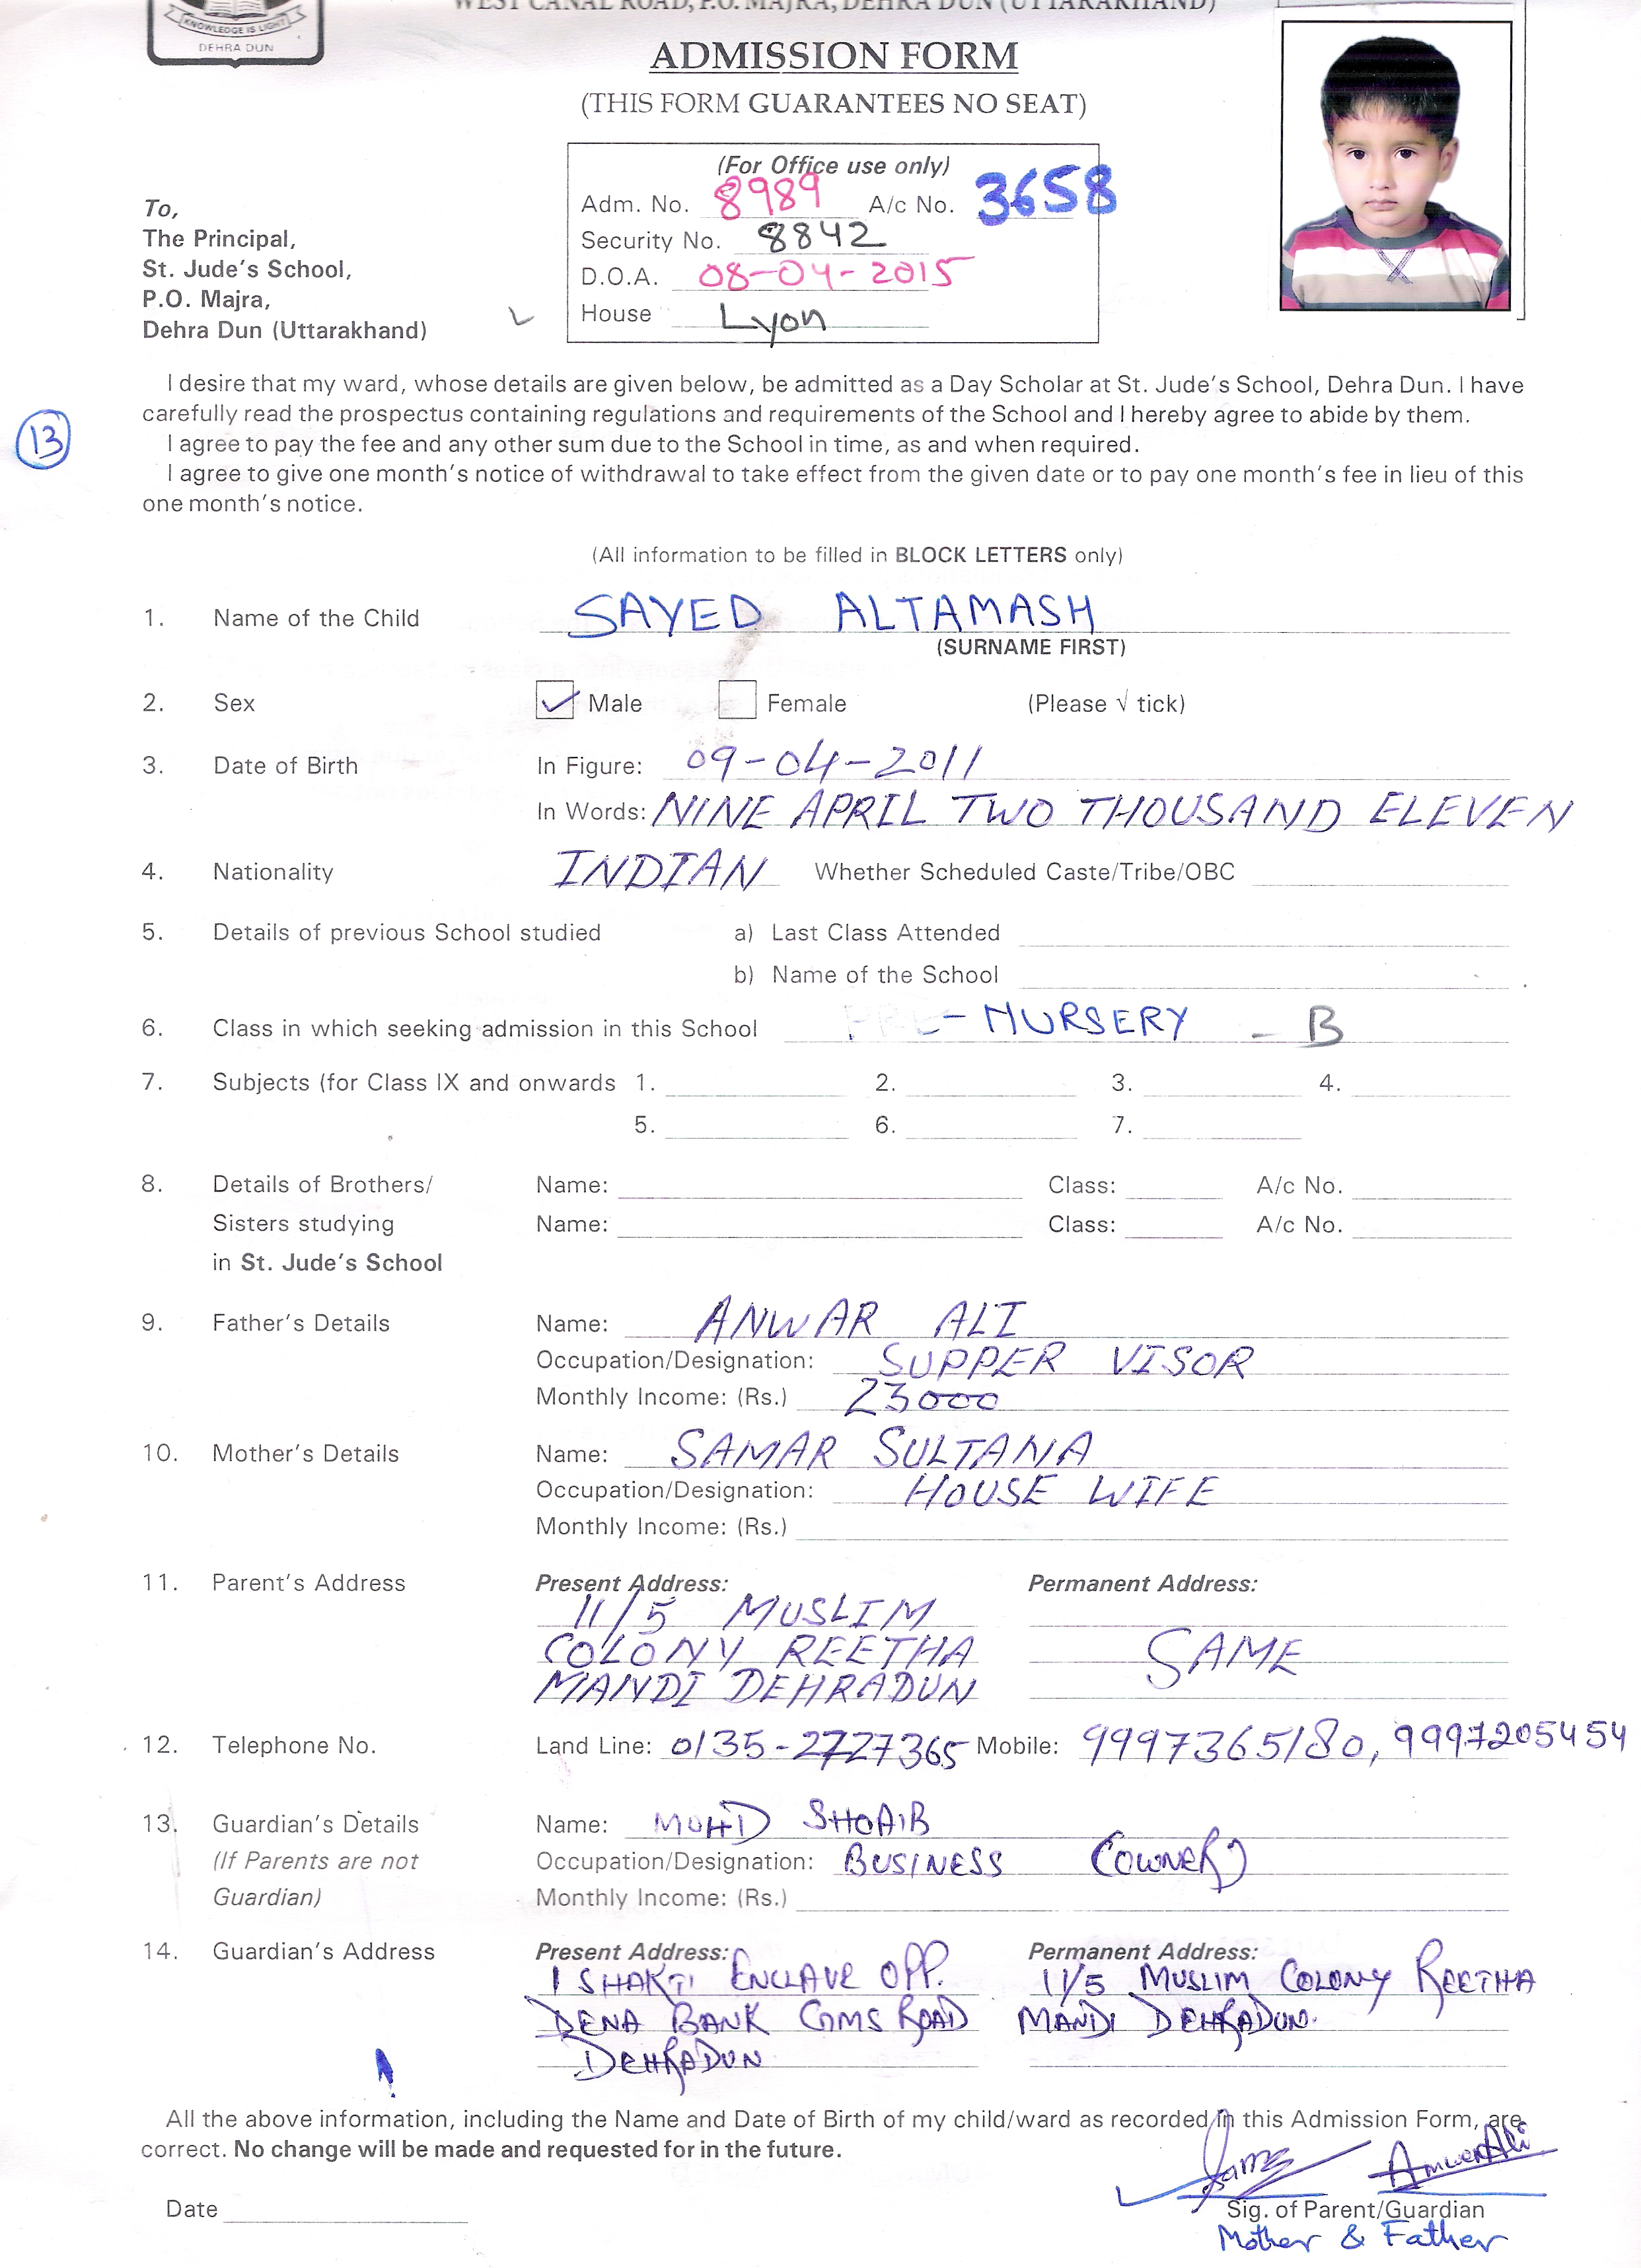 WEST CANAL ROAD, P.O. MAJRA, DEHRA DUN (UTTARAKHAND)
KNOWLEDGE IS LIGHT
DEHRA DUN
ADMISSION FORM
(THIS FORM GUARANTEES NO SEAT)
(For Office use only)
Adm. No. 8989 A/c No. 3658
Security No. 8842
D.O.A. 08-04-2015
House Lyon
To,
The Principal,
St. Jude's School,
P.O. Majra,
Dehra Dun (Uttarakhand)
I desire that my ward, whose details are given below, be admitted as a Day Scholar at St. Jude's School, Dehra Dun. I have
carefully read the prospectus containing regulations and requirements of the School and I hereby agree to abide by them.
13
I agree to pay the fee and any other sum due to the School in time, as and when required.
I agree to give one month's notice of withdrawal to take effect from the given date or to pay one month's fee in lieu of this
one month's notice.
(All information to be filled in BLOCK LETTERS only)
1. Name of the Child SAYED ALTAMASH
(SURNAME FIRST)
2. Sex ✓ Male Female (Please √ tick)
3. Date of Birth In Figure: 09-04-2011
In Words: NINE APRIL TWO THOUSAND ELEVEN
4. Nationality INDIAN Whether Scheduled Caste/Tribe/OBC
5. Details of previous School studied a) Last Class Attended
b) Name of the School
6. Class in which seeking admission in this School PRE-NURSERY - B
7. Subjects (for Class IX and onwards 1. 2. 3. 4.
5. 6. 7.
8. Details of Brothers/ Name: Class: A/c No.
Sisters studying Name: Class: A/c No.
in St. Jude's School
9. Father's Details Name: ANWAR ALI
Occupation/Designation: SUPPER VISOR
Monthly Income: (Rs.) 23000
10. Mother's Details Name: SAMAR SULTANA
Occupation/Designation: HOUSE WIFE
Monthly Income: (Rs.)
11. Parent's Address Present Address: Permanent Address:
11/5 MUSLIM
COLONY REETHA SAME
MANDI DEHRADUN
12. Telephone No. Land Line: 0135-2727365 Mobile: 9997365180, 9997205454
13. Guardian's Details Name: MOHD SHOAIB
(If Parents are not Occupation/Designation: BUSINESS (OWNER)
Guardian) Monthly Income: (Rs.)
14. Guardian's Address Present Address: Permanent Address:
1 SHAKTI ENCLAVE OPP. 11/5 MUSLIM COLONY REETHA
DENA BANK GMS ROAD MANDI DEHRADUN.
DEHRADUN
All the above information, including the Name and Date of Birth of my child/ward as recorded in this Admission Form, are
correct. No change will be made and requested for in the future.
Anwar Ali
Date Sig. of Parent/Guardian
Mother & Father